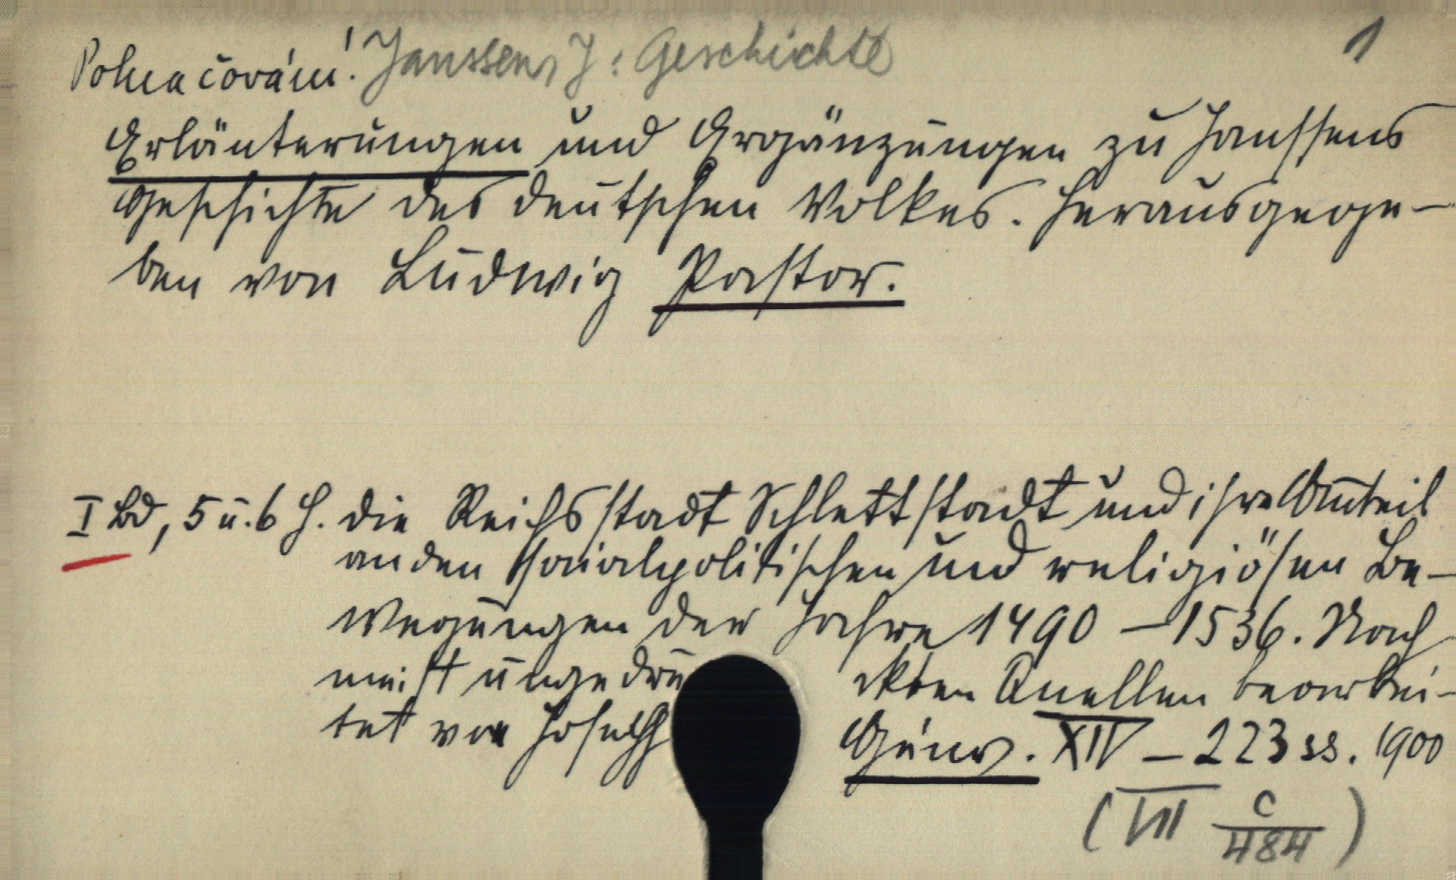 Pokračování. Janssen, J: Geschichte
1
Erläuterungen und Ergänzungen zu Janssens
Geschichte des deutschen Volkes. Herausgege-
ben von Ludwig Pastor.
I Bd, 5 u. 6 H. die Reichsstadt Schlettstadt und ihr Anteil
an den socialpolitischen und religiösen Be-
wegungen der Jahre 1490 – 1536. Nach
meist ungedruckten Quellen bearbei-
tet von Joseph Gény. XIV – 223 ss. 1900
(VII C/484)